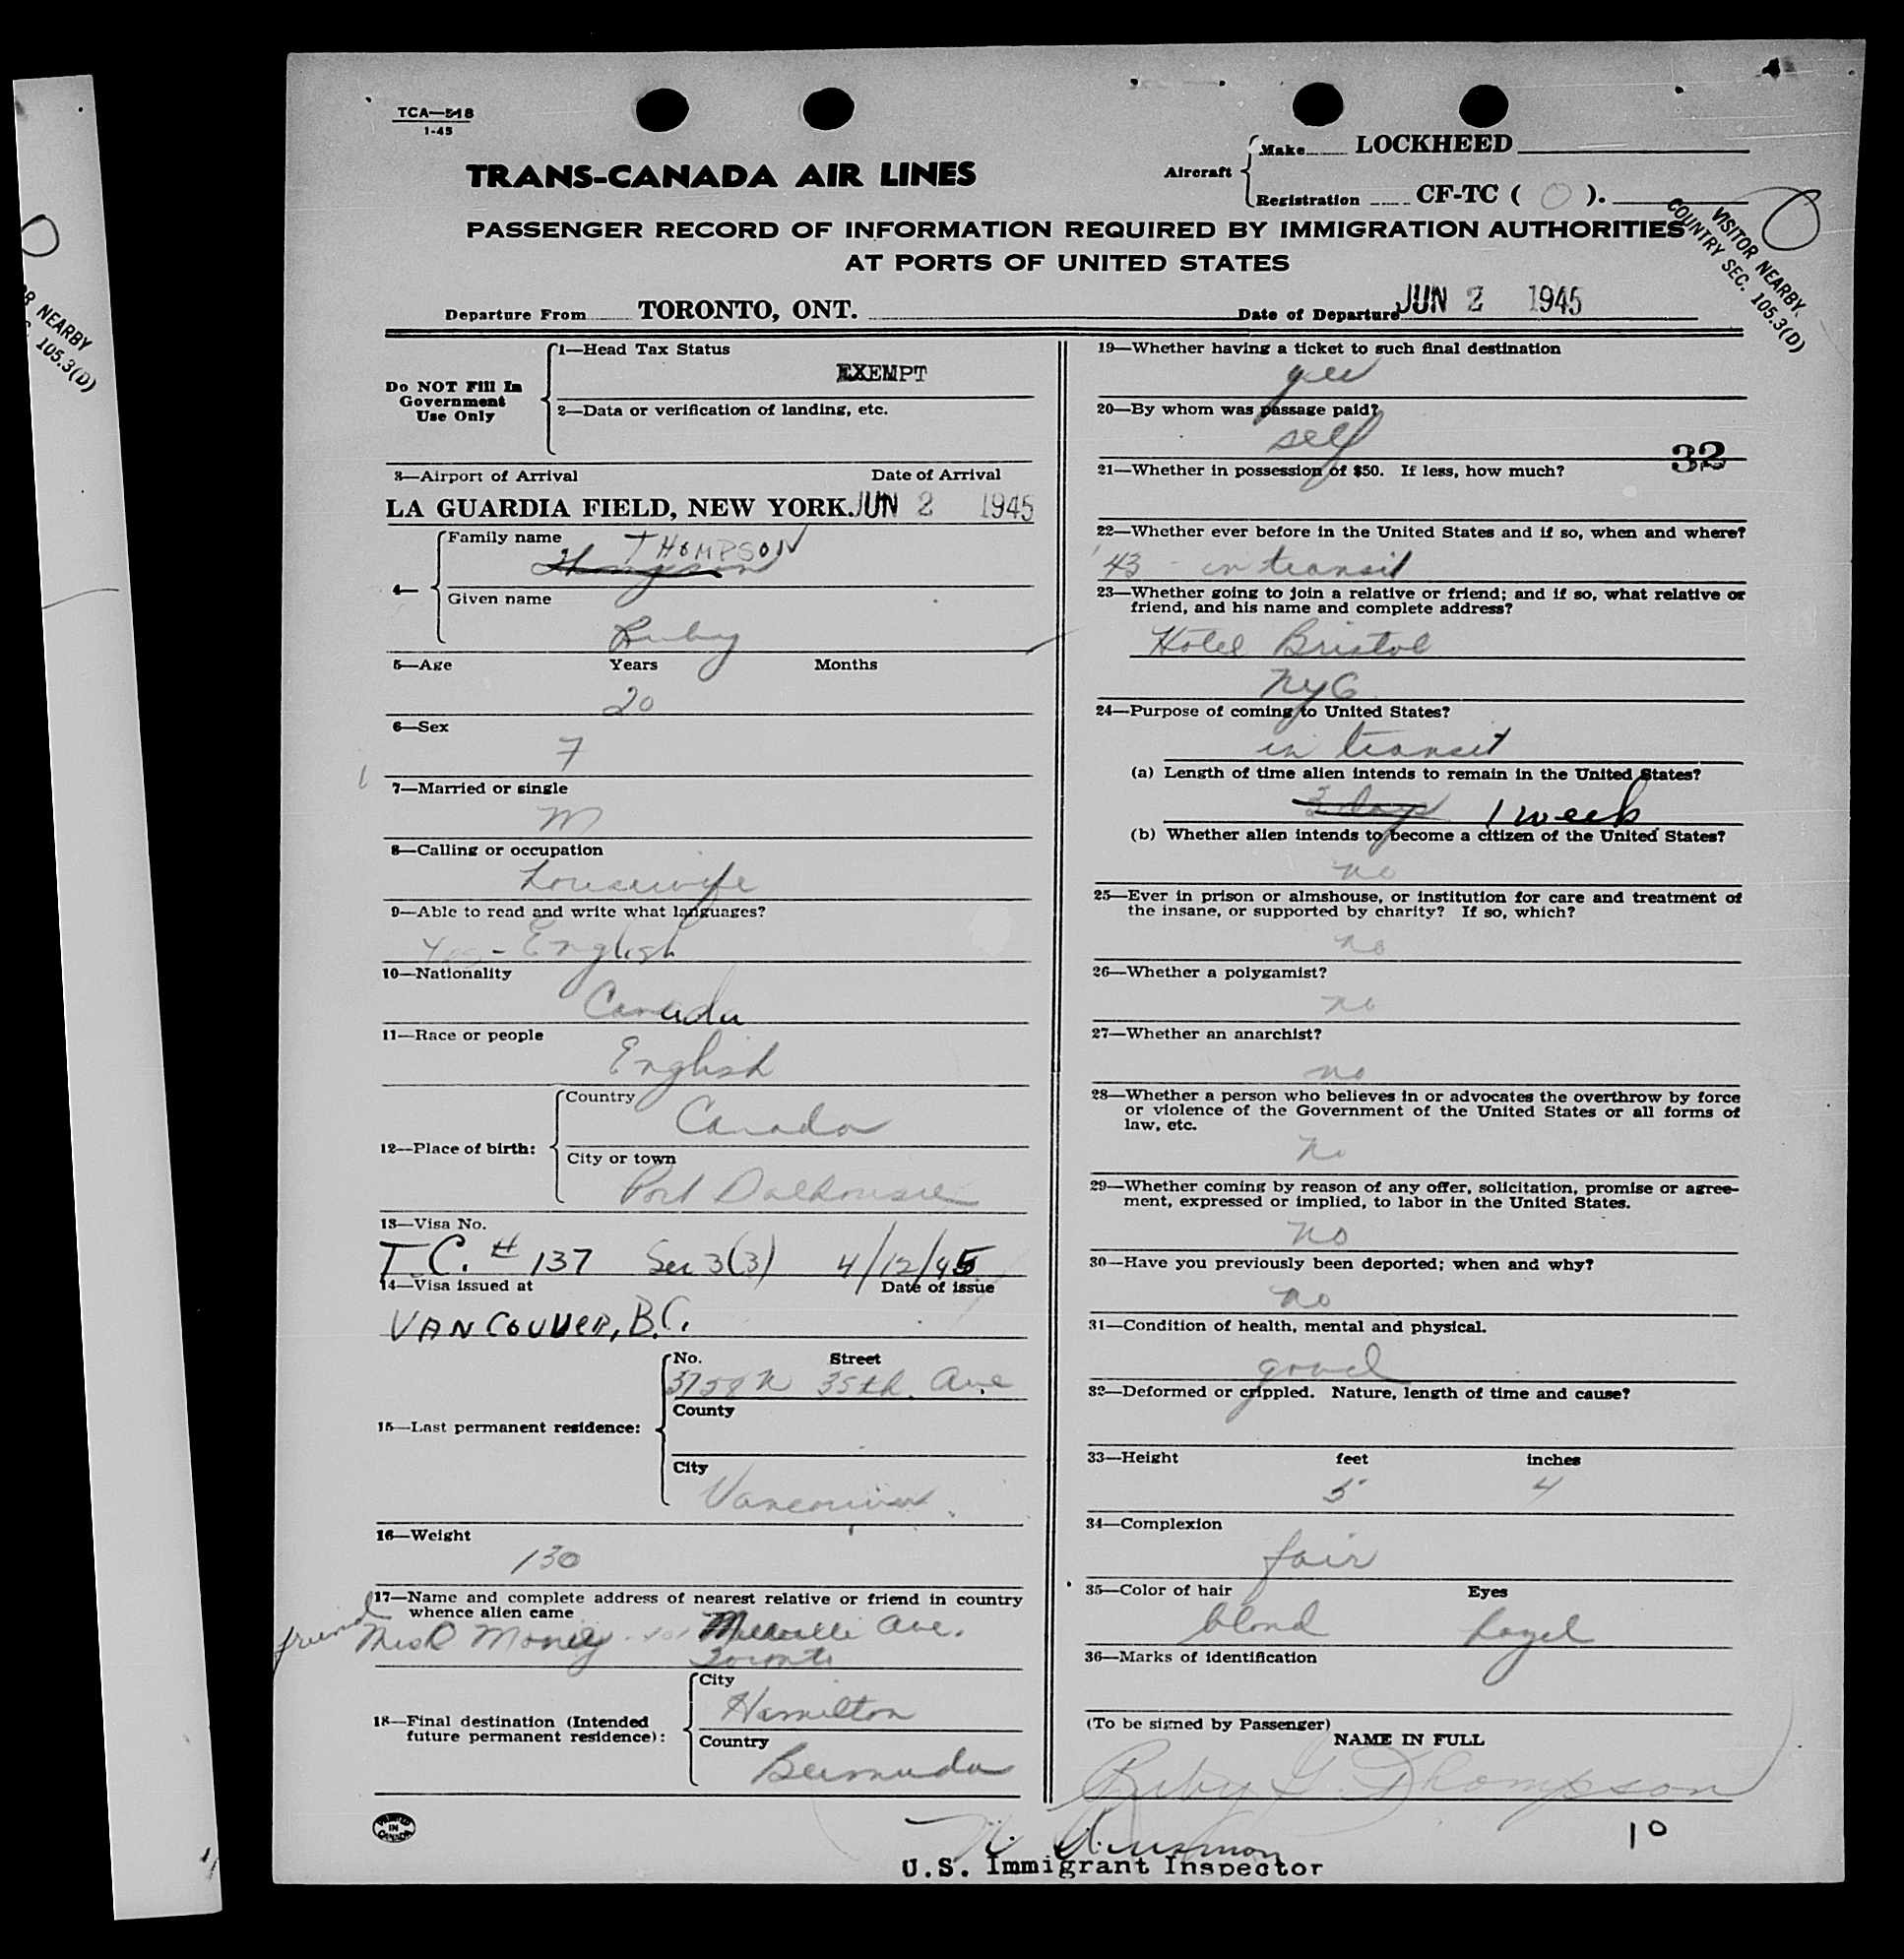 TCA—518
1-45
TRANS-CANADA AIR LINES
Aircraft
Make LOCKHEED
Registration CF-TC ( O ).
PASSENGER RECORD OF INFORMATION REQUIRED BY IMMIGRATION AUTHORITIES
AT PORTS OF UNITED STATES
VISITOR NEARBY
COUNTRY SEC. 105.3(D)
Departure From TORONTO, ONT. Date of Departure JUN 2 1945
Do NOT Fill In
Government
Use Only
1—Head Tax Status
EXEMPT
2—Data or verification of landing, etc.
3—Airport of Arrival Date of Arrival
LA GUARDIA FIELD, NEW YORK. JUN 2 1945
4—
Family name THOMPSON
Thompson
Given name
Ruby
5—Age Years Months
20
6—Sex
F
7—Married or single
M
8—Calling or occupation
housewife
9—Able to read and write what languages?
Yes - English
10—Nationality
Canada
11—Race or people
English
12—Place of birth:
Country
Canada
City or town
Port Dalhousie
13—Visa No.
T.C. # 137 Sec 3(3) 4/12/45
14—Visa issued at Date of issue
VANCOUVER, B.C.
15—Last permanent residence:
No. Street
35th. Ave
County
City
Vancouver
16—Weight
130
17—Name and complete address of nearest relative or friend in country
whence alien came
friend Ave.
Toronto
18—Final destination (Intended
future permanent residence):
City
Hamilton
Country
Bermuda
PRINTED
IN
CANADA
19—Whether having a ticket to such final destination
yes
20—By whom was passage paid?
self
32
21—Whether in possession of $50. If less, how much?
22—Whether ever before in the United States and if so, when and where?
'43 - in transit
23—Whether going to join a relative or friend; and if so, what relative or
friend, and his name and complete address?
Hotel Bristol
NYC
24—Purpose of coming to United States?
in transit
(a) Length of time alien intends to remain in the United States?
3 days 1 week
(b) Whether alien intends to become a citizen of the United States?
no
25—Ever in prison or almshouse, or institution for care and treatment of
the insane, or supported by charity? If so, which?
no
26—Whether a polygamist?
no
27—Whether an anarchist?
no
28—Whether a person who believes in or advocates the overthrow by force
or violence of the Government of the United States or all forms of
law, etc.
no
29—Whether coming by reason of any offer, solicitation, promise or agree-
ment, expressed or implied, to labor in the United States.
no
30—Have you previously been deported; when and why?
no
31—Condition of health, mental and physical.
good
32—Deformed or crippled. Nature, length of time and cause?
33—Height feet inches
5 4
34—Complexion
fair
35—Color of hair Eyes
blond hazel
36—Marks of identification
(To be signed by Passenger)
NAME IN FULL
Ruby G. Thompson
10
U.S. Immigrant Inspector
NEARBY
105.3(D)